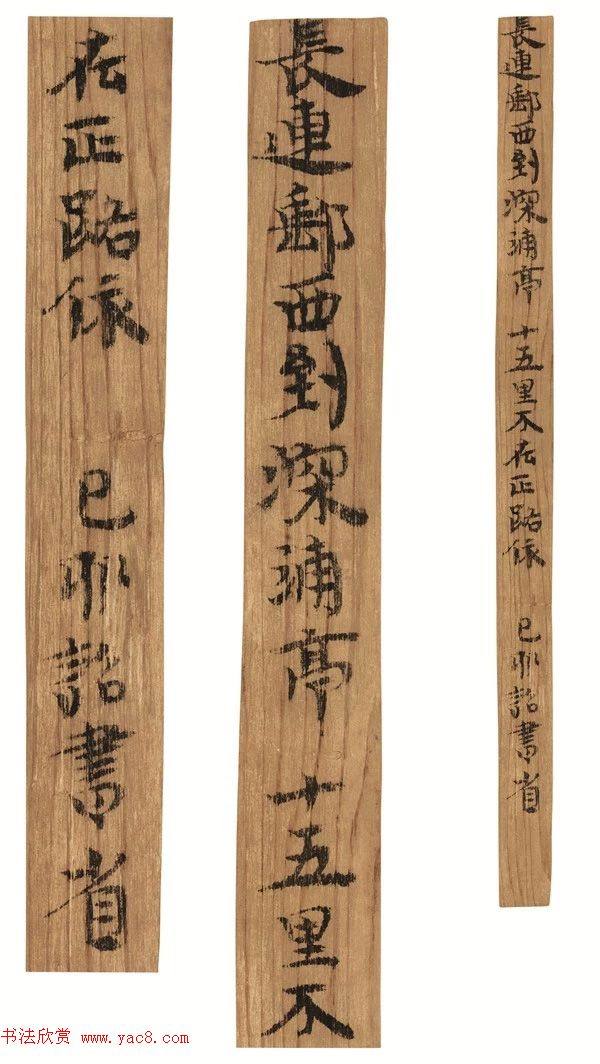 長連郵西到深浦亭 十五里不在正路依 己卯詔書省
長連郵西到深浦亭 十五里不
在正路依 己卯詔書省
书法欣赏 www.yac8.com